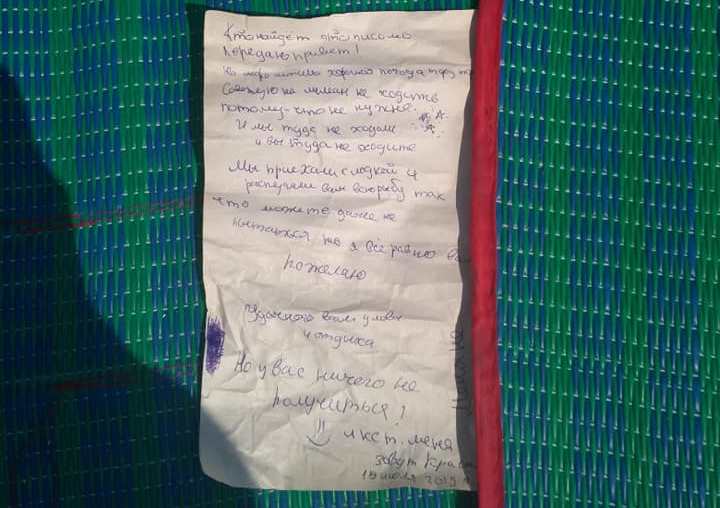 Кто найдёт это письмо
передаю привет!
хорошая погода
Советую на не ходить
потому-что не нужно.
И мы туда не ходили
и вы туда не ходите
Мы приехали с лодкой и
распугали вам всю рыбу так
что можете даже не
пытаться но я всё равно вам
пожелаю
Удачного вам улова
и отдыха
Но у вас ничего не
получиться!
и кст. меня
зовут
15 июля 2019 г